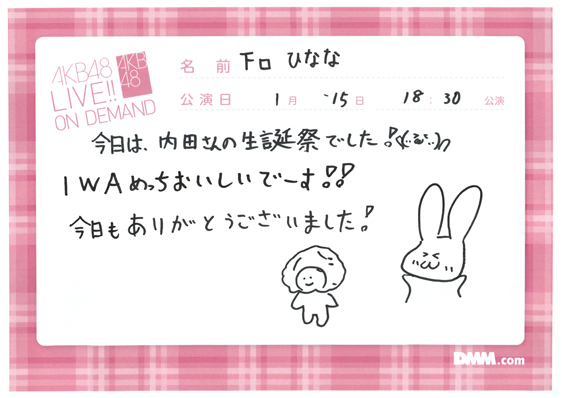 AKB48
LIVE!!
ON DEMAND
AKB
48
名 前 下口 ひなな
公演日 1月 15日 18:30 公演
今日は、内田さんの生誕祭でした!
IWAめっちおいしいでーす!!
今日もありがとうございました!
DMM.com